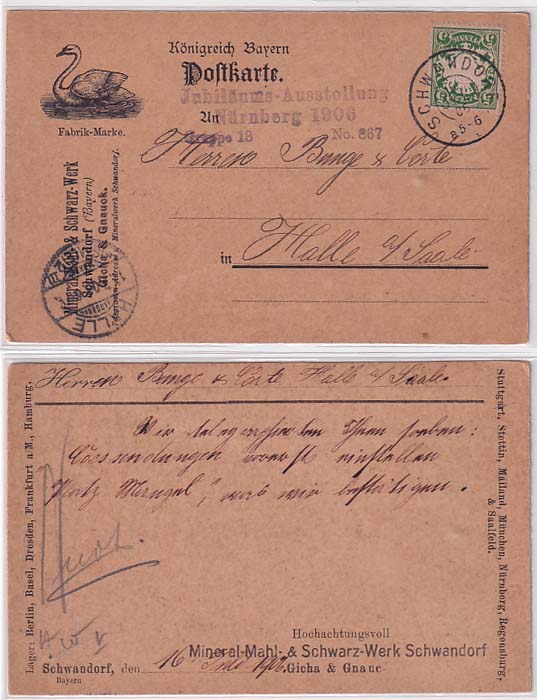 Königreich Bayern
Postkarte.
Jubiläums-Ausstellung
An
Nürnberg 1906
Gruppe 13 No. 867
Fabrik-Marke.
SCHWANDORF
5-6
Mineral-Mahl- & Schwarz-Werk
Schwandorf (Bayern)
Gicha & Gnauck.
Telegramm-Adresse: Mineralwerk Schwandorf.
HALLE
Herren Bunge & Corte
in Halle a/Saale.
Herren Bunge & Corte Halle a/Saale.
Wir telegraphierten Ihnen soeben:
einstellen
Mangel", was wir bestätigen.
Lager: Berlin, Basel, Dresden, Frankfurt a/M., Hamburg,
Stuttgart, Stettin, Mailand, München, Nürnberg, Regensburg,
& Saalfeld.
Hochachtungsvoll
Mineral-Mahl- & Schwarz-Werk Schwandorf
Schwandorf, den 16
Gicha & Gnauc
Bayern